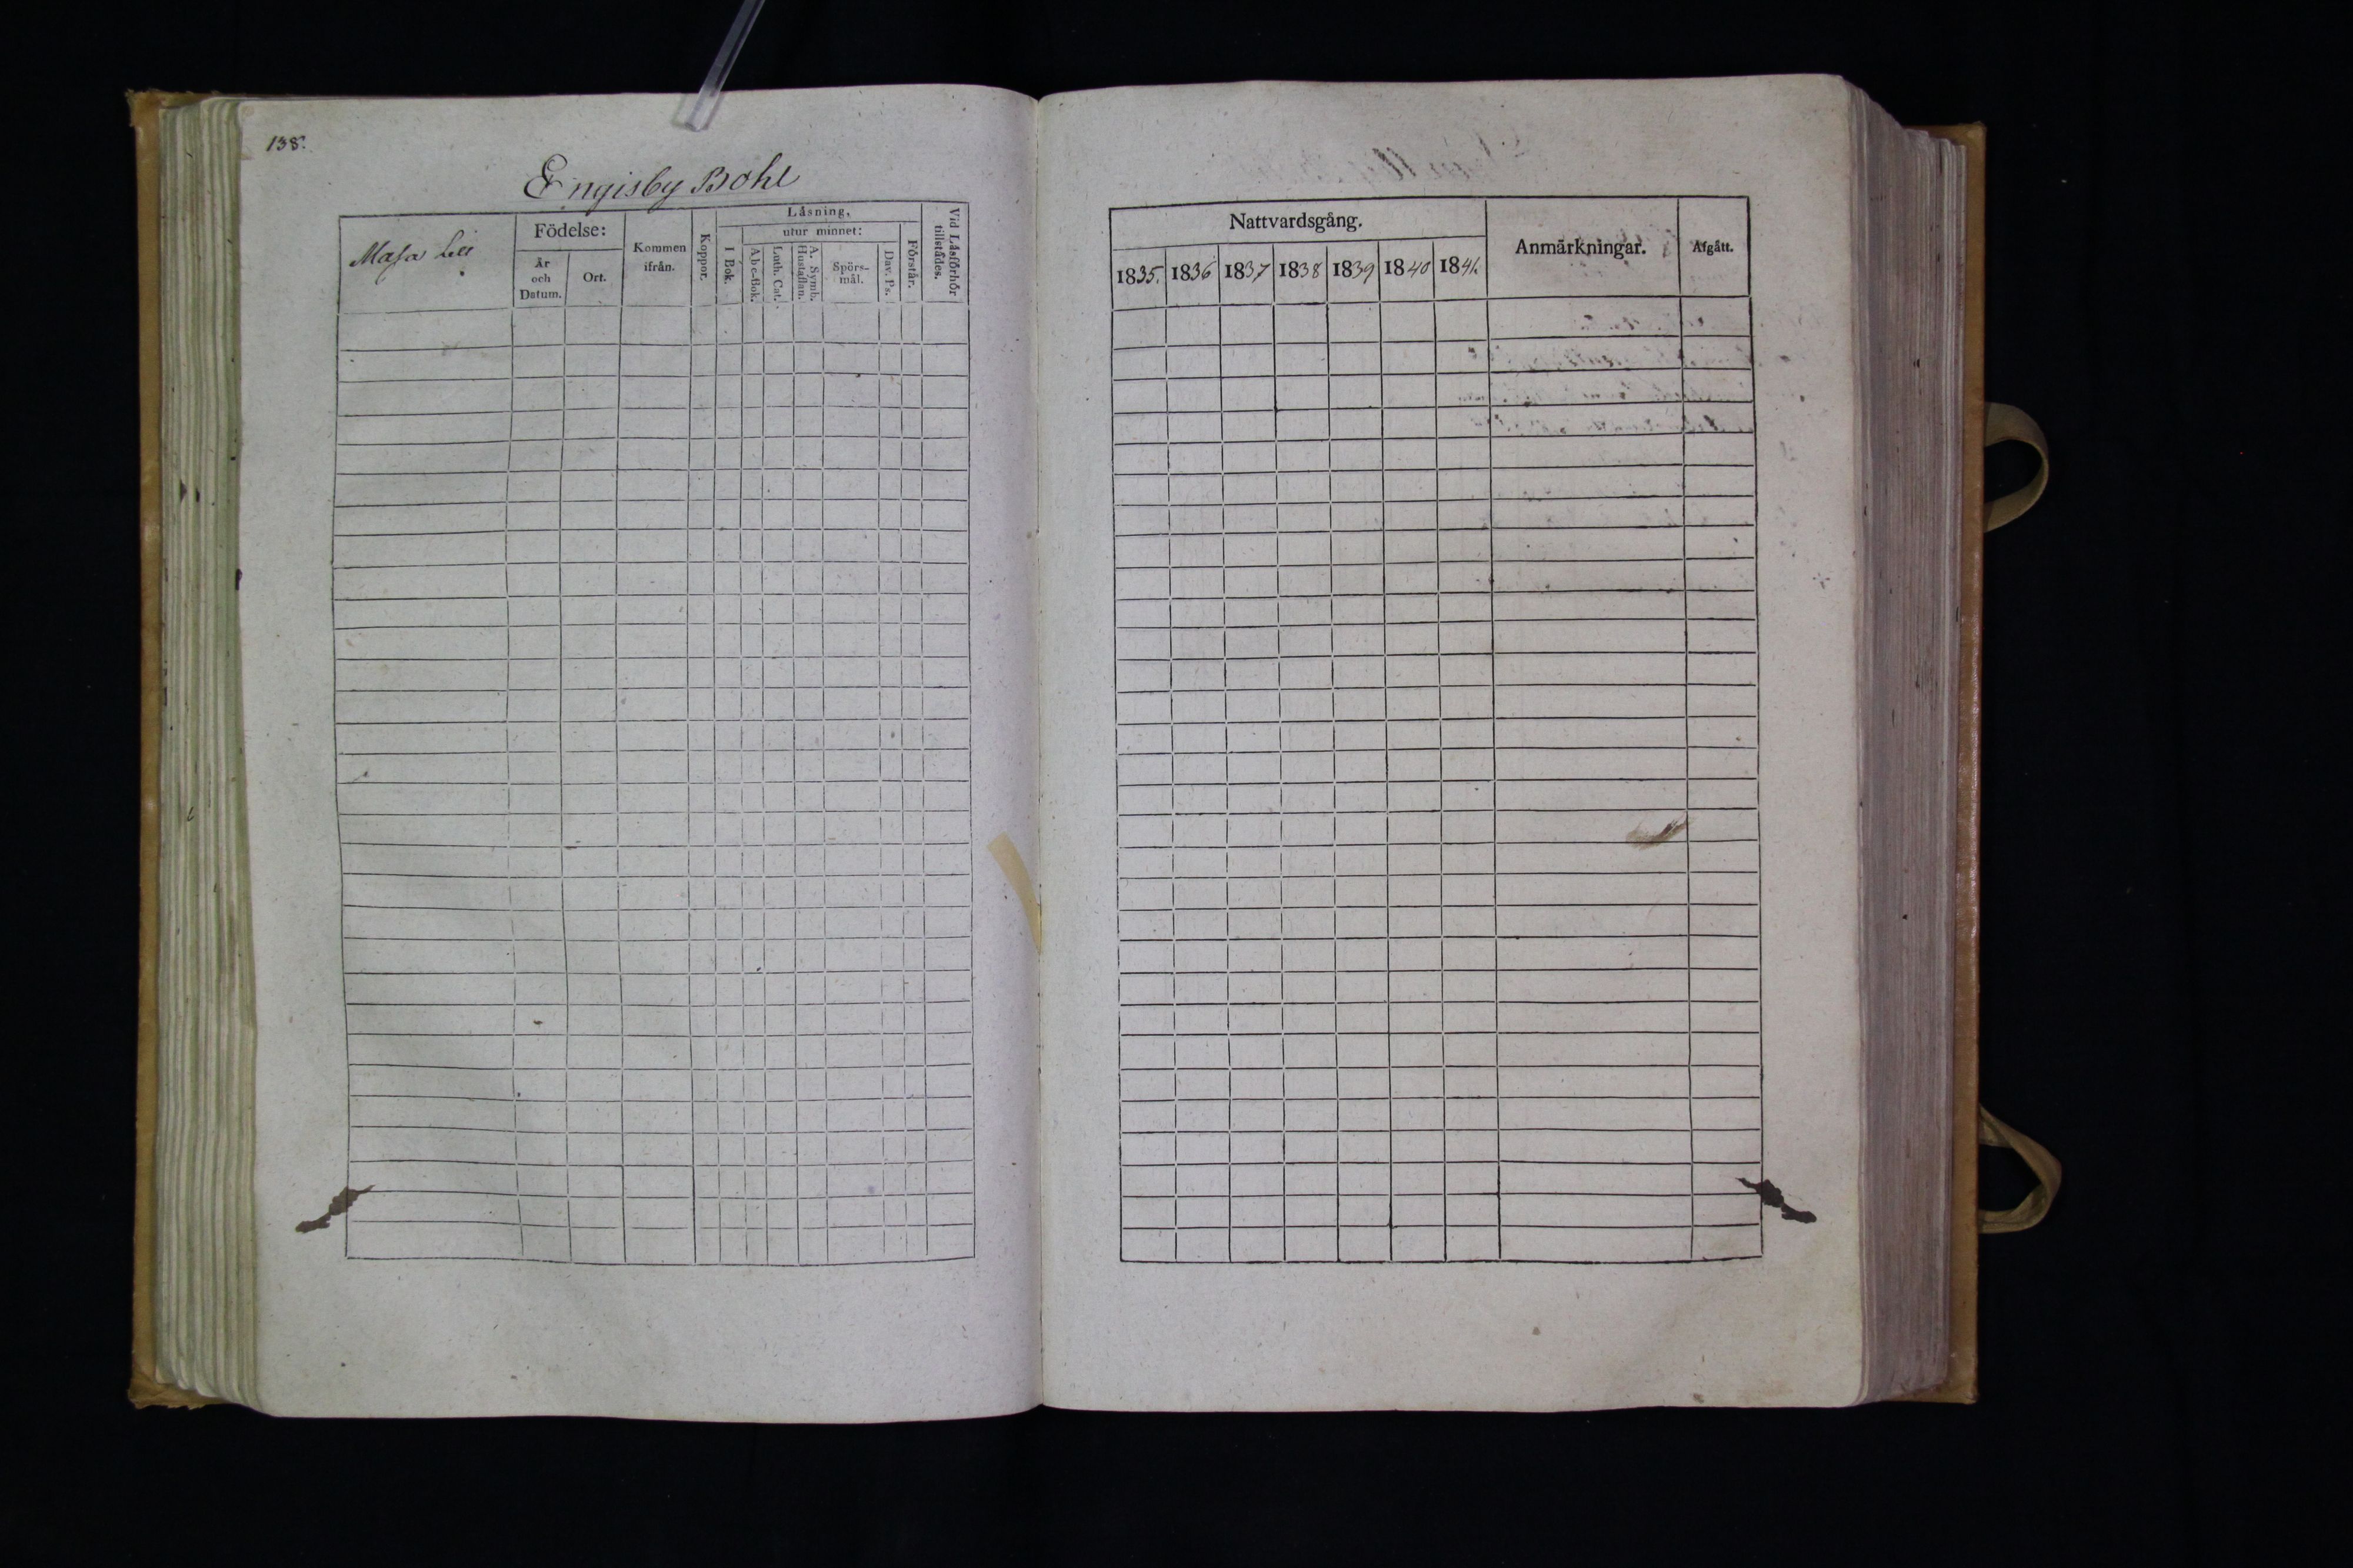 138.
Engisby Bohl
Läsning,
Födelse:
utur minnet:
Kommen
ifrån.
Koppor.
I Bok.
Abc-Bok.
Luth. Cat.
A. Symb.
Hustaflan.
Spörs-
mål.
Dav. Ps.
Förstår.
Vid Läsförhör
tillstädes.
År
och
Datum.
Ort.
Nattvardsgång.
Anmärkningar.
Afgått.
1835. 1836 1837 1838 1839 1840 1841.